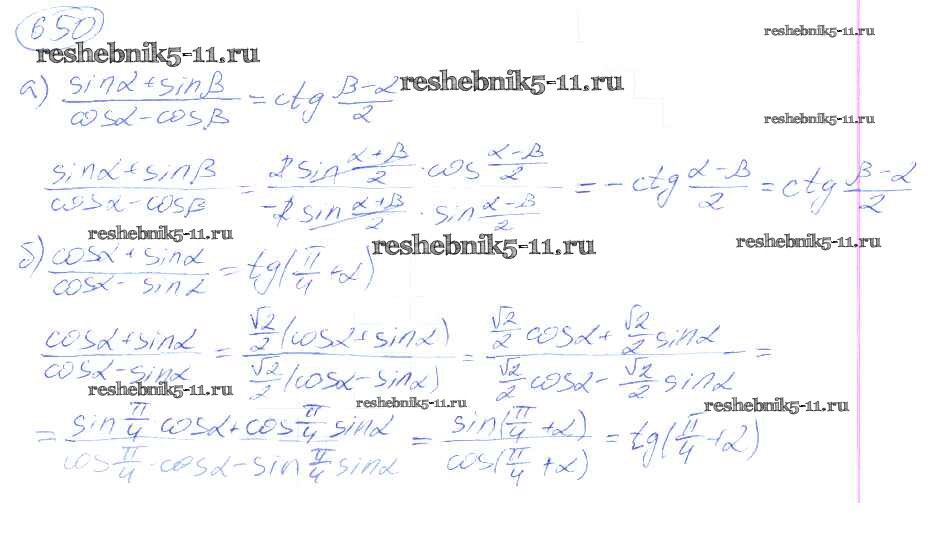 650
reshebnik5-11.ru
reshebnik5-11.ru
а) (sinα + sinβ)/(cosα - cosβ) = ctg (β-α)/2
reshebnik5-11.ru
reshebnik5-11.ru
(sinα + sinβ)/(cosα - cosβ) = (2 sin (α+β)/2 · cos (α-β)/2)/(-2 sin (α+β)/2 · sin (α-β)/2) = - ctg (α-β)/2 = ctg (β-α)/2
reshebnik5-11.ru
reshebnik5-11.ru
reshebnik5-11.ru
б) (cosα + sinα)/(cosα - sinα) = tg(π/4 + α)
(cosα + sinα)/(cosα - sinα) = (√2/2 (cosα + sinα))/(√2/2 (cosα - sinα)) = (√2/2 cosα + √2/2 sinα)/(√2/2 cosα - √2/2 sinα) =
reshebnik5-11.ru
reshebnik5-11.ru
reshebnik5-11.ru
= (sin π/4 cosα + cos π/4 sinα)/(cos π/4 · cosα - sin π/4 sinα) = sin(π/4 + α)/cos(π/4 + α) = tg(π/4 + α)